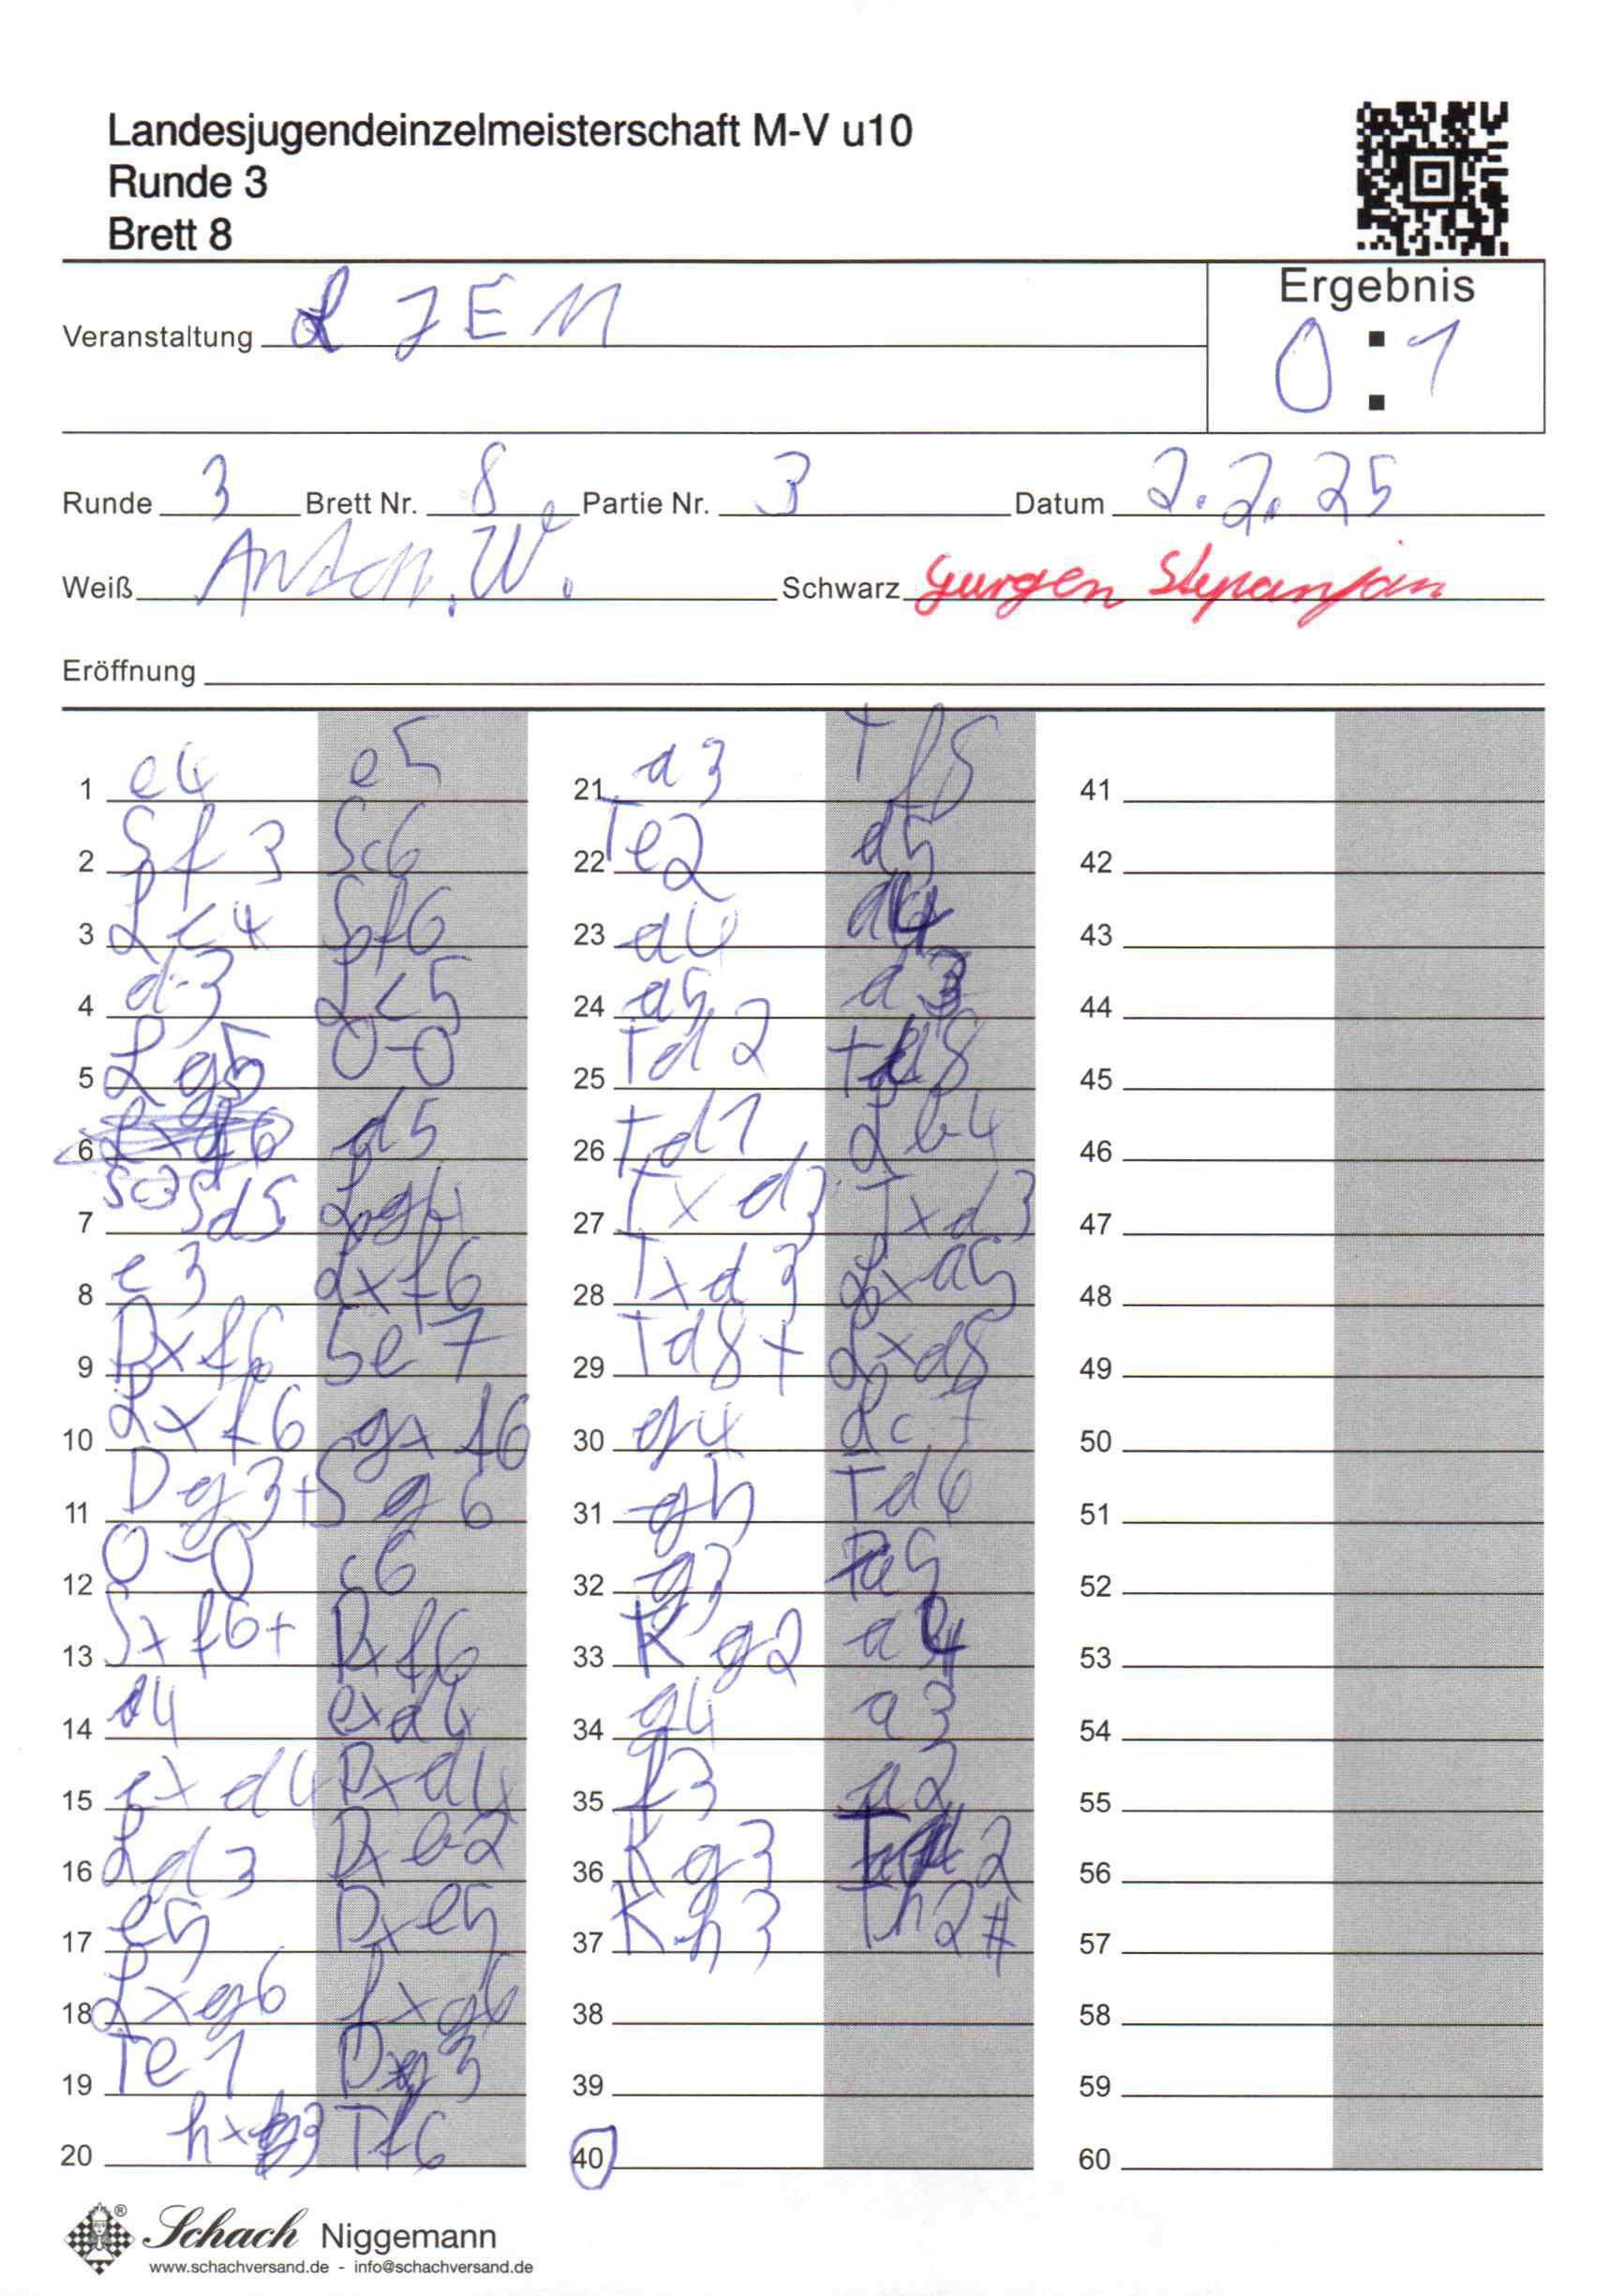 Landesjugendeinzelmeisterschaft M-V u10
Runde 3
Brett 8
Veranstaltung LJEM
Ergebnis
0 : 1
Runde 3 Brett Nr. 8 Partie Nr. 3 Datum 2.2.25
Weiß Anton.W. Schwarz Gurgen Stepanjan
Eröffnung
1 e4 e5
2 Sf3 Sc6
3 Lc4 Sf6
4 d3 Lc5
5 Lg5 0-0
6 Sc3 d5
7 Sd5 Lg4
8 e3 Lxf6
9 Dxf6 Se7
10 Lxf6 gxf6
11 Dg3+ Sg6
12 0-0 c6
13 Sxf6+ Dxf6
14 d4 exd4
15 exd4 Dxd4
16 Ld3 Dxb2
17 e5 Dxe5
18 Lxg6 fxg6
19 Te1 Dxg3
20 hxg3 Tf6
21 a3 Tf8
22 Te2 d5
23 a4 d4
24 a5 d3
25 Td2 Td8
26 Td1 Lb4
27 Txd3 Txd3
28 Txd3 Lxa5
29 Td8+ Lxd8
30 g4 Lc7
31 g5 Td6
32 g3 a5
33 Kg2 a4
34 g4 a3
35 f3 a2
36 Kg3 2
37 Kh3 Th2#
38
39
40
41
42
43
44
45
46
47
48
49
50
51
52
53
54
55
56
57
58
59
60
Schach Niggemann
www.schachversand.de - info@schachversand.de